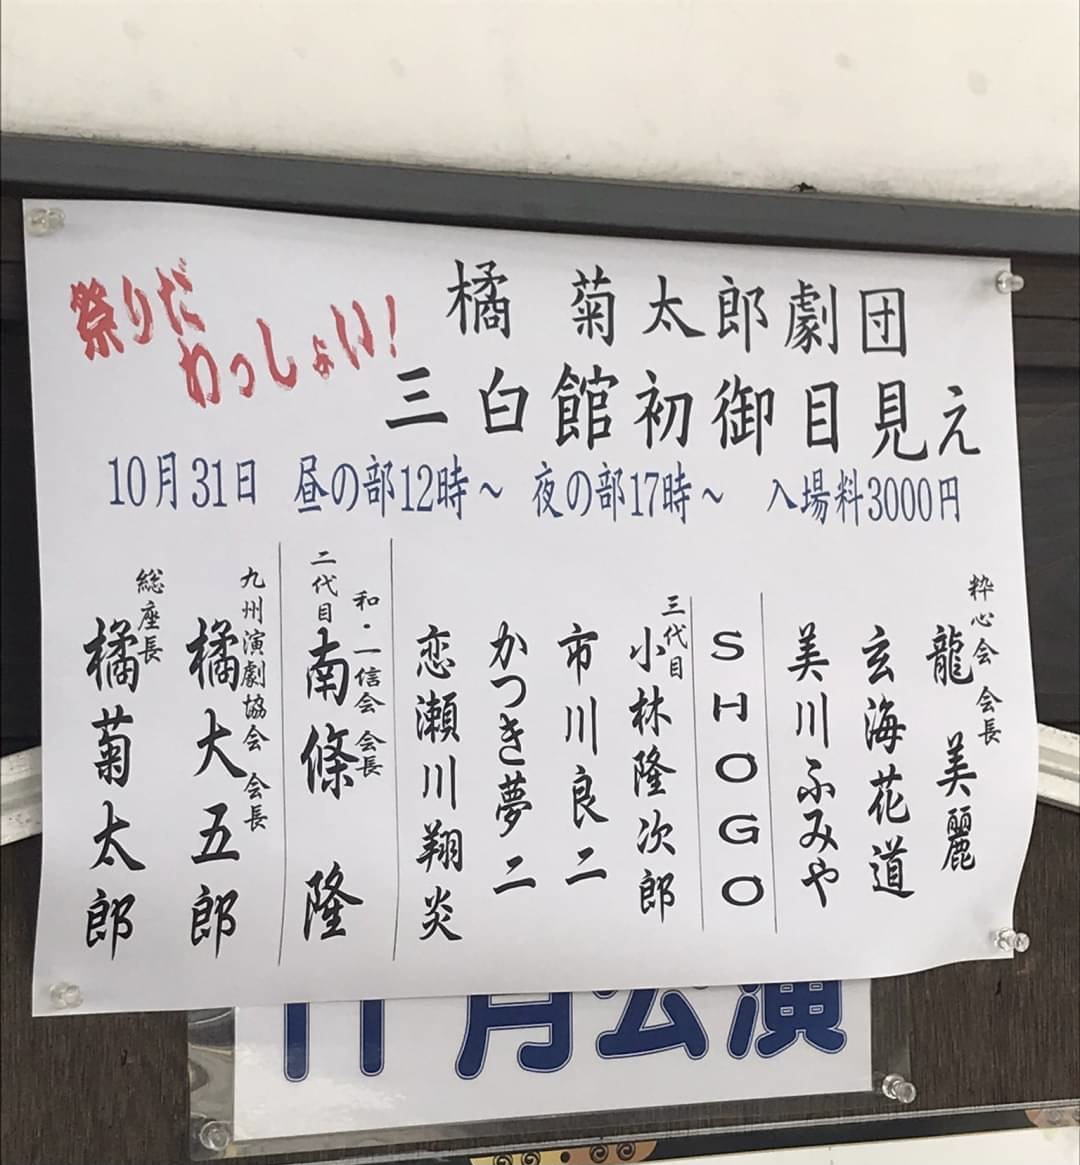 祭りだ
わっしょい！
橘 菊太郎劇団
三白館初御目見え
10月31日 昼の部12時～ 夜の部17時～ 入場料3000円
粋心会 会長
龍 美麗
玄海花道
美川ふみや
SHOGO
三代目
小林隆次郎
市川良二
かつき夢二
恋瀬川翔炎
和・一信会 会長
二代目
南條 隆
九州演劇協会 会長
橘大五郎
総座長
橘菊太郎
月公演